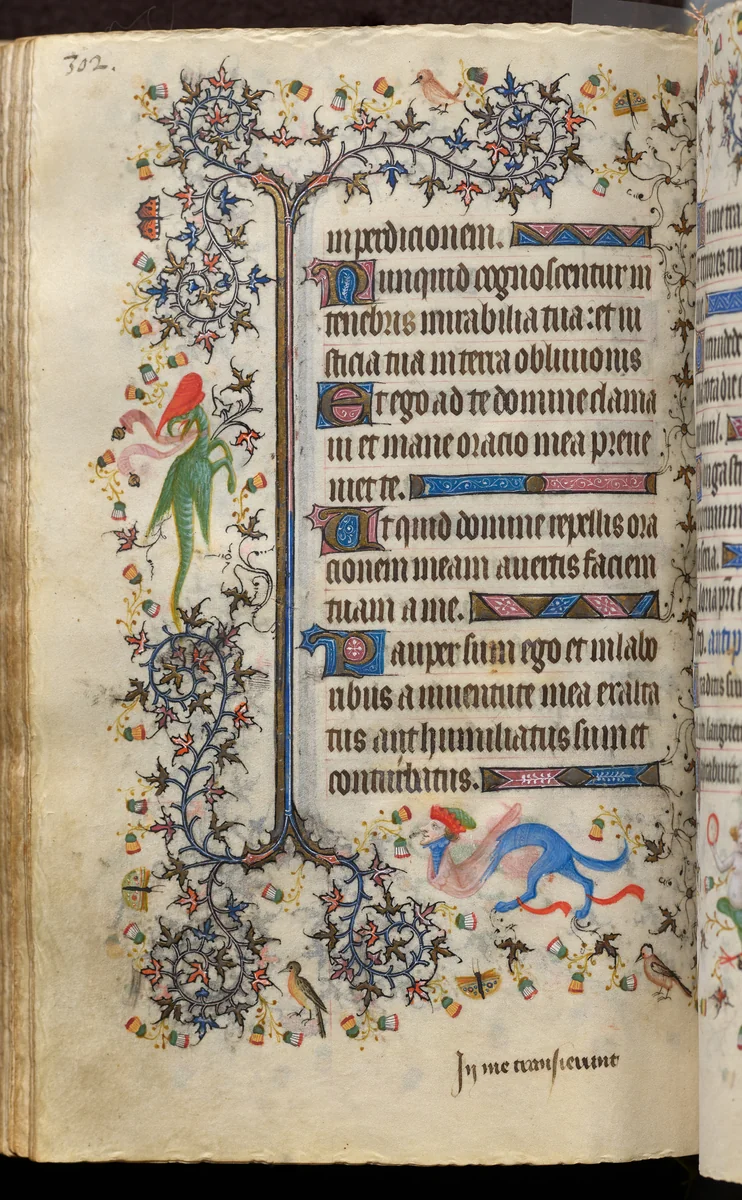 302.
in perdicionem.
Nunquid cognoscentur in
tenebris mirabilia tua: et iu
sticia tua in terra obliuionis
Et ego ad te domine clama
ui et mane oracio mea preue
niet te.
Vt quid domine repellis ora
cionem meam auertis faciem
tuam a me.
Pauper sum ego et in labo
ribus a iuuentute mea exalta
tus aut humiliatus sum et
conturbatus.
In me transierunt